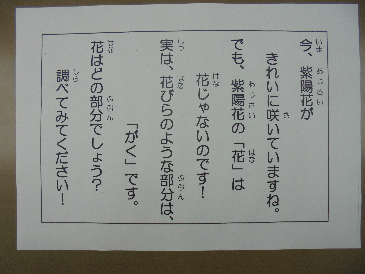 今、紫陽花が
きれいに咲いていますね。
でも、紫陽花の「花」は
花じゃないのです！
実は、花びらのような部分は、
「がく」です。
花はどの部分でしょう？
調べてみてください！